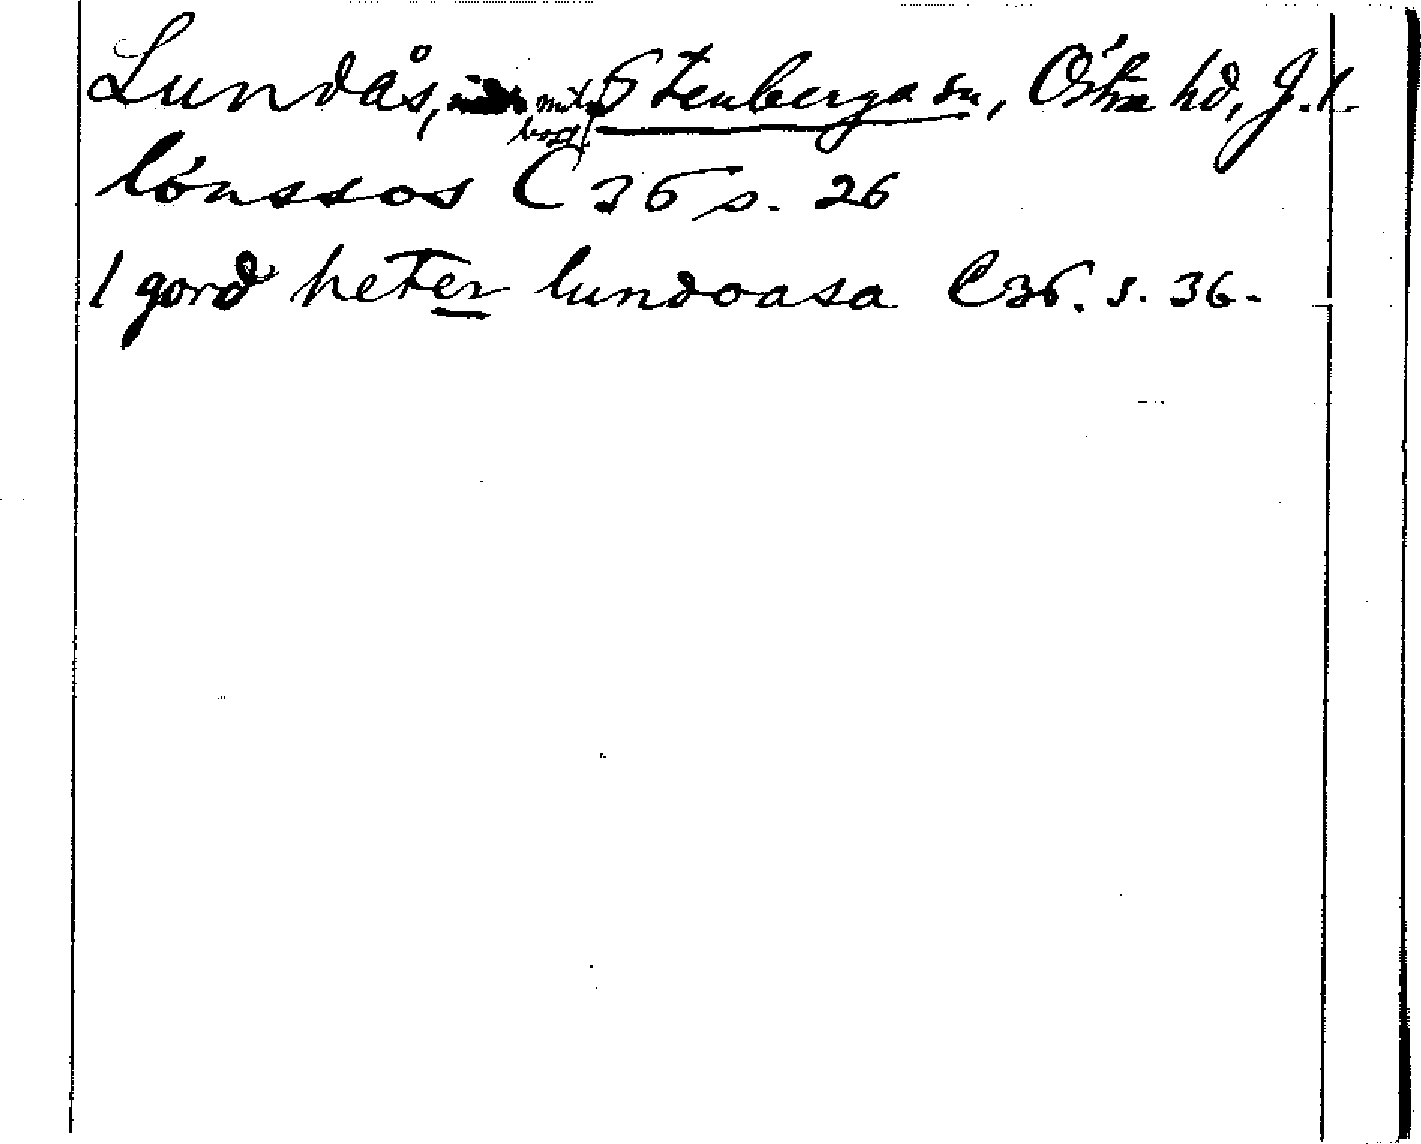 Lundås, Stenberga sn, Östra hd, J.l.
lónssos C 36 s. 26
1 gord heter lundoasa C 36. s. 36.